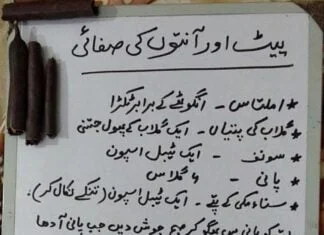 پیٹ اور آنتوں کی صفائی
* املتاس - انگوٹھے کے برابر ٹکڑا
* گلاب کی پتیاں - ایک گلاب کے پھول جتنی
* سونف - ایک ٹیبل اسپون
* پانی - ۶ گلاس
* سناء مکی کے پتے - ایک ٹیبل اسپون (تنکے نکال کر)
پانی میں بھگو کر جوش دیں جب پانی آدھا